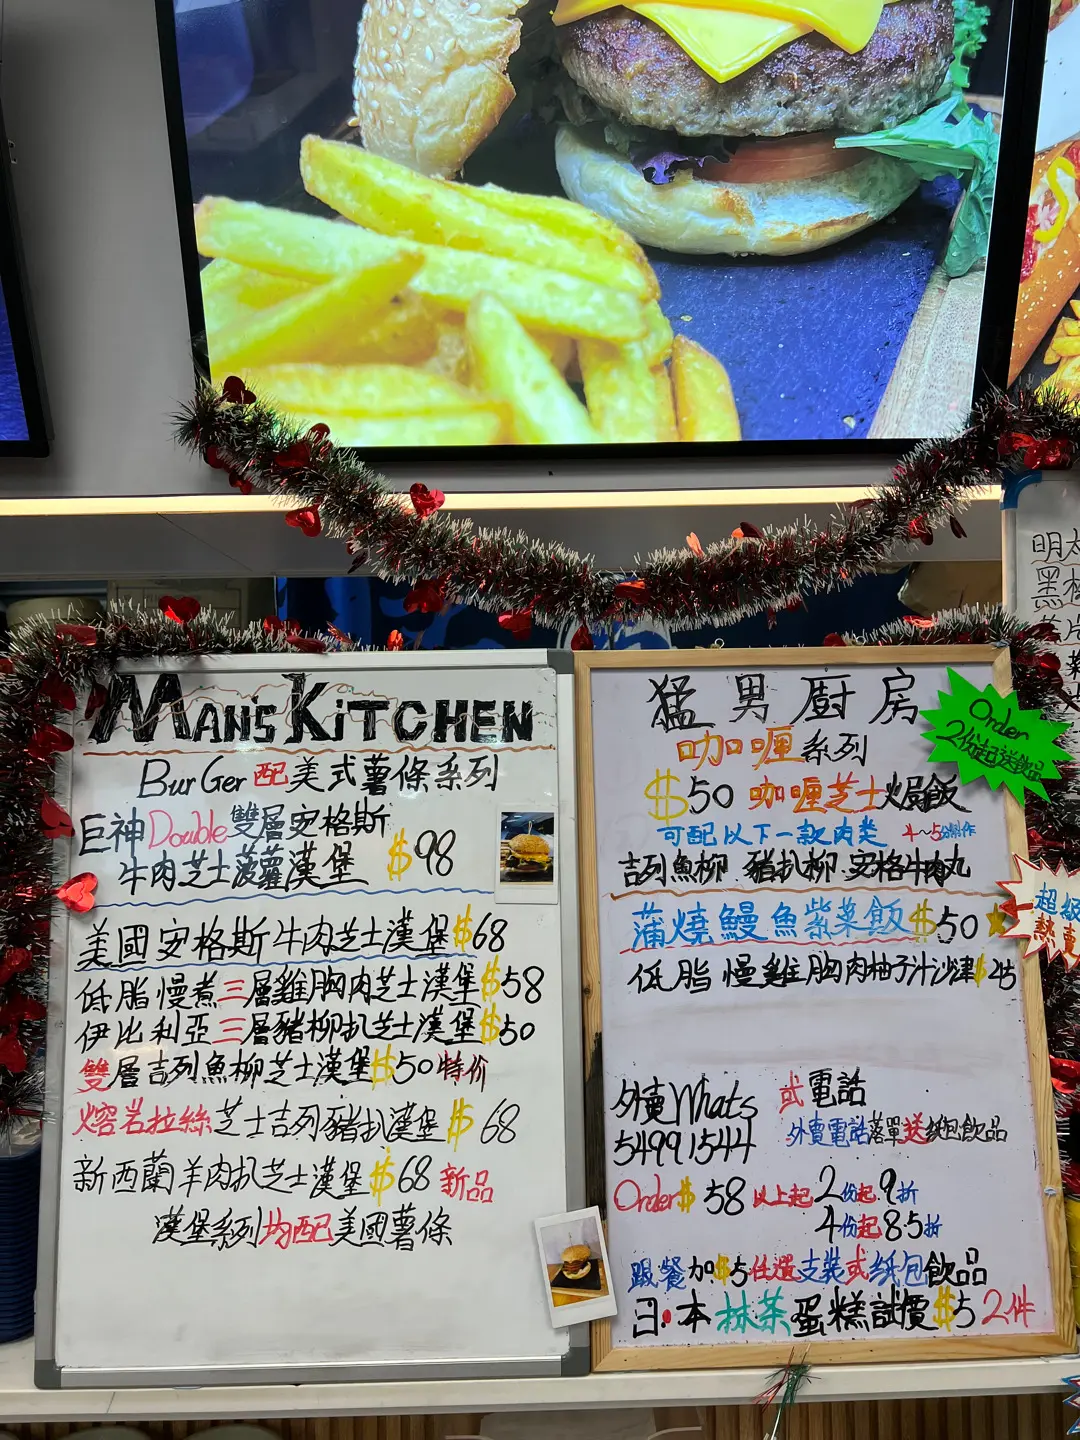 MAN'S KiTCHEN
BurGer配美式薯條系列
巨神Double雙層安格斯
牛肉芝士菠蘿漢堡 $98
美國安格斯牛肉芝士漢堡$68
低脂慢煮三層雞胸肉芝士漢堡$58
伊比利亞三層豬柳扒芝士漢堡$50
雙層吉列魚柳芝士漢堡$50特价
熔岩拉絲芝士吉列豬扒漢堡$68
新西蘭羊肉扒芝士漢堡$68新品
漢堡系列均配美國薯條
猛男廚房
咖喱系列
Order
2份起送飲品
$50咖喱芝士焗飯
可配以下一款肉类 4~5分鐘作
吉列魚柳 豬扒柳 安格牛肉丸
蒲燒鰻魚紫菜飯$50
超級
熱賣
低脂慢雞胸肉柚子汁沙津$45
外賣Whats 或電話
54991544 外賣電話落單送纸包飲品
Order$58以上起2份起9折
4份起85折
跟餐加$5任選支裝或纸包飲品
日本抹茶蛋糕試價$5 2件
明太
黑椒